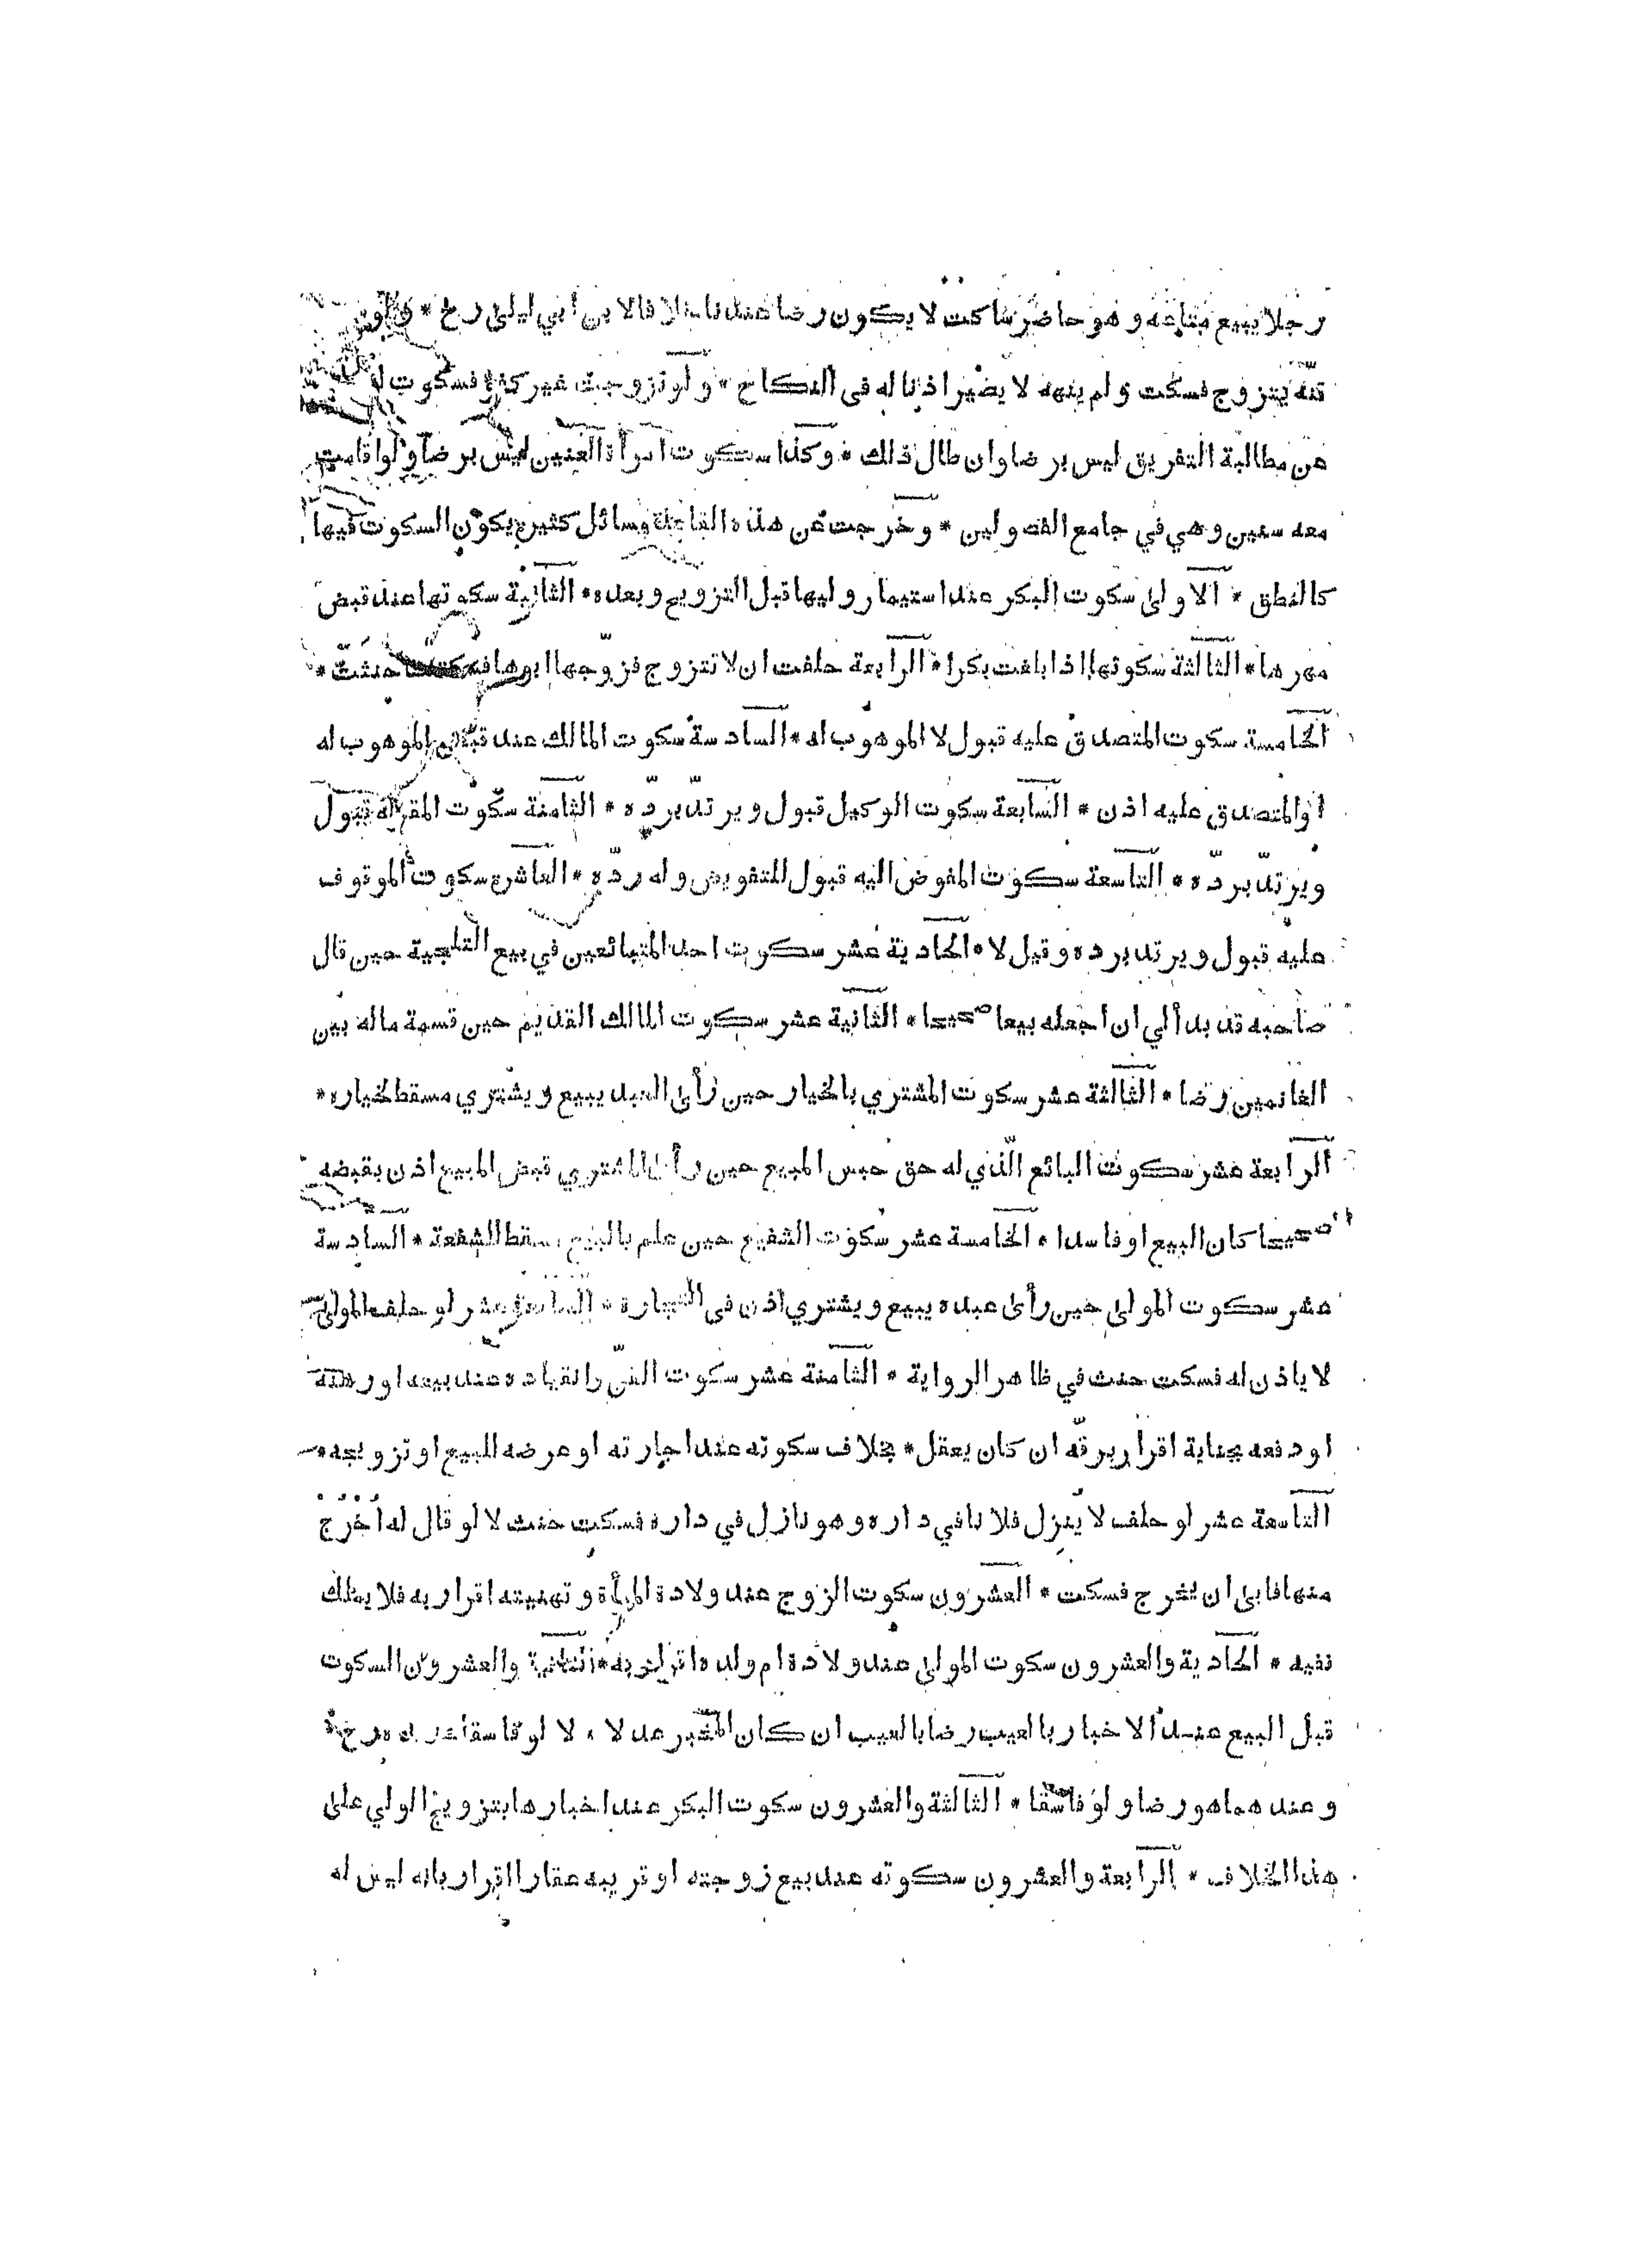 رجلا يبيع متاعه وهو حاضر ساكت لا يكون رضا عندنا خلافا لابن أبي ليلى رح * ولو
قنّه يتزوج فسكت ولم ينهه لا يصير اذنا له في النكاح * ولو تزوجت غير كفؤ فسكوت
عن مطالبة التفريق ليس برضا وان طال ذلك * وكذا سكوت امرأة العنين ليس برضا ولو اقامت
معه سنين وهي في جامع الفصولين * وخرجت عن هذه القاعدة مسائل كثيرة يكون السكوت فيها
كالنطق * الاولى سكوت البكر عند استيمار وليها قبل التزويج وبعده * الثانية سكوتها عند قبض
مهرها * الثالثة سكوتها اذا بلغت بكرا * الرابعة حلفت ان لا تتزوج فزوّجها ابوها فسكتت حنثت *
الخامسة سكوت المتصدق عليه قبول لا الموهوب له * السادسة سكوت المالك عند قبض الموهوب له
او المتصدق عليه اذن * السابعة سكوت الوكيل قبول ويرتدّ بردّه * الثامنة سكوت المقر له قبول
ويرتدّ بردّه * التاسعة سكوت المفوض اليه قبول للتفويض وله ردّه * العاشرة سكوت الموقوف
عليه قبول ويرتد برده وقيل لا * الحادية عشر سكوت احد المتبائعين في بيع التلجية حين قال
صاحبه قد بدأ لي ان اجعله بيعا صحيحا * الثانية عشر سكوت المالك القديم حين قسمة ماله بين
الغانمين رضا * الثالثة عشر سكوت المشتري بالخيار حين رأى العبد يبيع ويشتري مسقط لخياره *
الرابعة عشر سكوت البائع الّذي له حق حبس المبيع حين رأى المشتري قبض المبيع اذن بقبضه
صحيحا كان البيع او فاسدا * الخامسة عشر سكوت الشفيع حين علم بالبيع مسقط للشفعة * السادسة
عشر سكوت المولى حين رأى عبده يبيع ويشتري اذن في التجارة * السابعة عشر لو حلف المولى
لا ياذن له فسكت حنث في ظاهر الرواية * الثامنة عشر سكوت القنّ وانقياده عند بيعه او رهنه
او دفعه بجناية اقرار برقّه ان كان يعقل * بخلاف سكوته عند اجارته او عرضه للبيع او تزويجه *
التاسعة عشر لو حلف لا ينزل فلانا في داره وهو نازل في داره فسكت حنث لا لو قال له أخرج
منها فابى ان يخرج فسكت * العشرون سكوت الزوج عند ولادة المرأة وتهنيته اقرار به فلا يملك
نفيه * الحادية والعشرون سكوت المولى عند ولادة ام ولده اقرار به * الثانية والعشرون السكوت
قبل البيع عند الاخبار بالعيب رضا بالعيب ان كان المخبر عدلا ، لا لو فاسقا عنده رح *
وعندهما هو رضا ولو فاسقا * الثالثة والعشرون سكوت البكر عند اخبارها بتزويج الولي على
هذا الخلاف * الرابعة والعشرون سكوته عند بيع زوجته او قريبه عقارا اقرار بانه ليس له